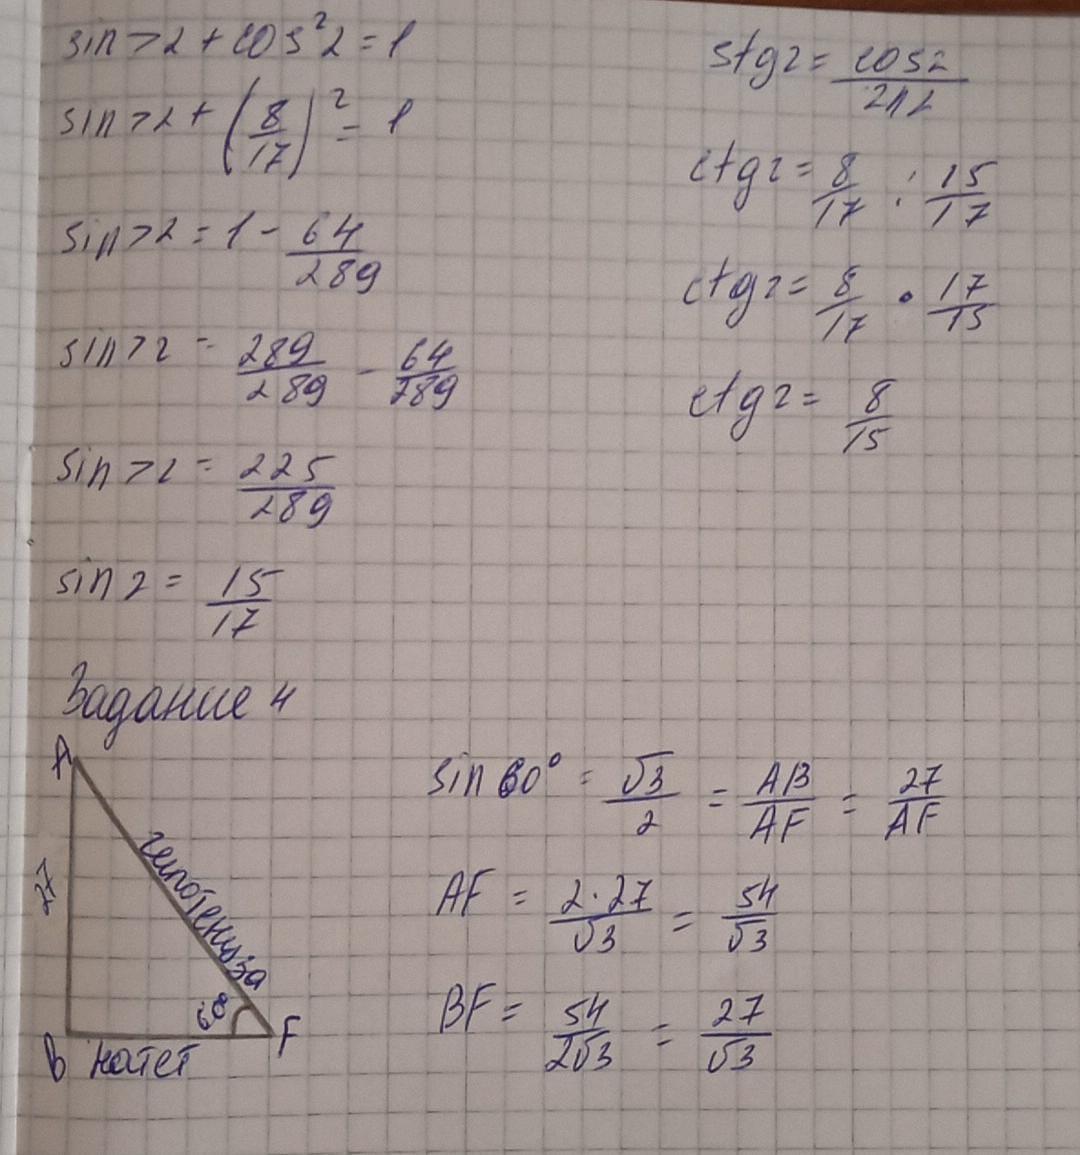 sin>2 + cos²2 = 1
sin>2 + (8/17)² = 1
sin>2 = 1 - 64/289
sin>2 = 289/289 - 64/289
sin>2 = 225/289
sin2 = 15/17
stg2 = cos2/2n2
ctg2 = 8/17 : 15/17
ctg2 = 8/17 • 17/15
ctg2 = 8/15
Задание 4
A
27
гипотенуза
60
B катет F
sin 60° = √3/2 = AB/AF = 27/AF
AF = 2·27/√3 = 54/√3
BF = 54/2√3 = 27/√3